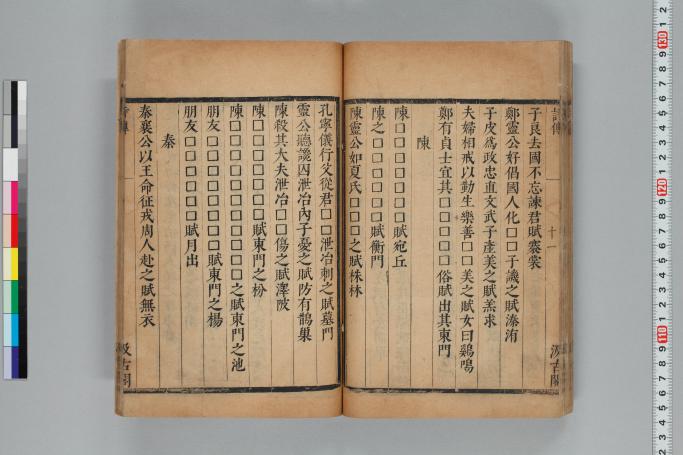 子良去國不忘諫君賦褰裳
鄭靈公好倡國人化□□子譏之賦溱洧
子皮爲政忠直文武子產美之賦羔求
夫婦相戒以勤生樂善□□美之賦女曰鷄鳴
鄭有貞士宜其□□□□俗賦出其東門
陳
陳□□□□□□□賦宛丘
陳之□□□□□賦衡門
陳靈公如夏氏□□□之賦株林
孔寧儀行父從君□□泄冶刺之賦墓門
靈公聽讒囚泄冶內子憂之賦防有鵲巢
陳殺其大夫泄冶□□傷之賦澤陂
陳□□□□□□□□賦東門之枌
陳□□□□□□□□□之賦東門之池
朋友□□□□□□□□賦東門之楊
朋友□□□□□□□賦月出
秦
秦襄公以王命征戎周人赴之賦無衣
詩傳
十一
汲古閣
汲古閣